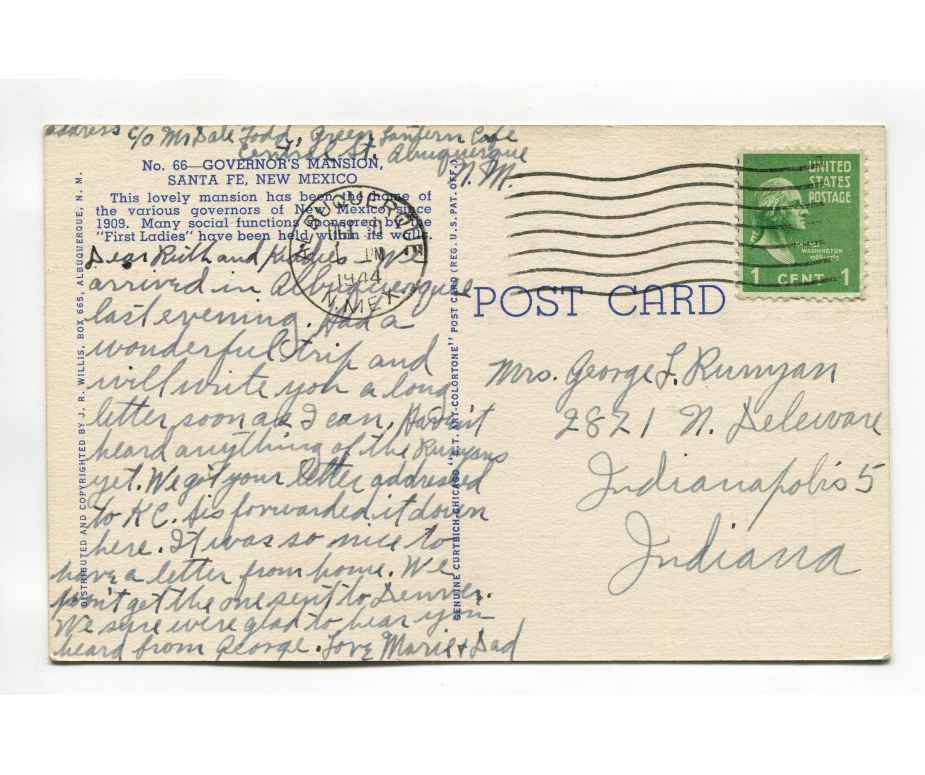 address c/o Mr Dale Todd, Green Lantern Cafe
Central St. Albuquerque
N.M.
No. 66—GOVERNOR'S MANSION,
SANTA FE, NEW MEXICO
This lovely mansion has been the home of
the various governors of New Mexico since
1909. Many social functions sponsored by the
"First Ladies" have been held within its walls.
Dear Ruth and Kiddies - We
arrived in Albuquerque
last evening. Had a
wonderful trip and
will write you a long
letter soon as I can. Haven't
heard anything of the Runyans
yet. We got your letter addressed
to KC. Sis forwarded it down
here. It was so nice to
have a letter from home. We
don't get the one sent to Denver.
We sure were glad to hear you
heard from George. Love Marie + Dad
DISTRIBUTED AND COPYRIGHTED BY J. R. WILLIS, BOX 665, ALBUQUERQUE, N. M.
GENUINE CURTEICH-CHICAGO "C.T. ART-COLORTONE" POST CARD (REG. U.S. PAT. OFF.)
ALBUQUERQUE
1944
N.MEX.
UNITED
STATES
POSTAGE
WASHINGTON
1 CENT 1
POST CARD
Mrs. George F. Runyan
2821 N. Deleware
Indianapolis 5
Indiana